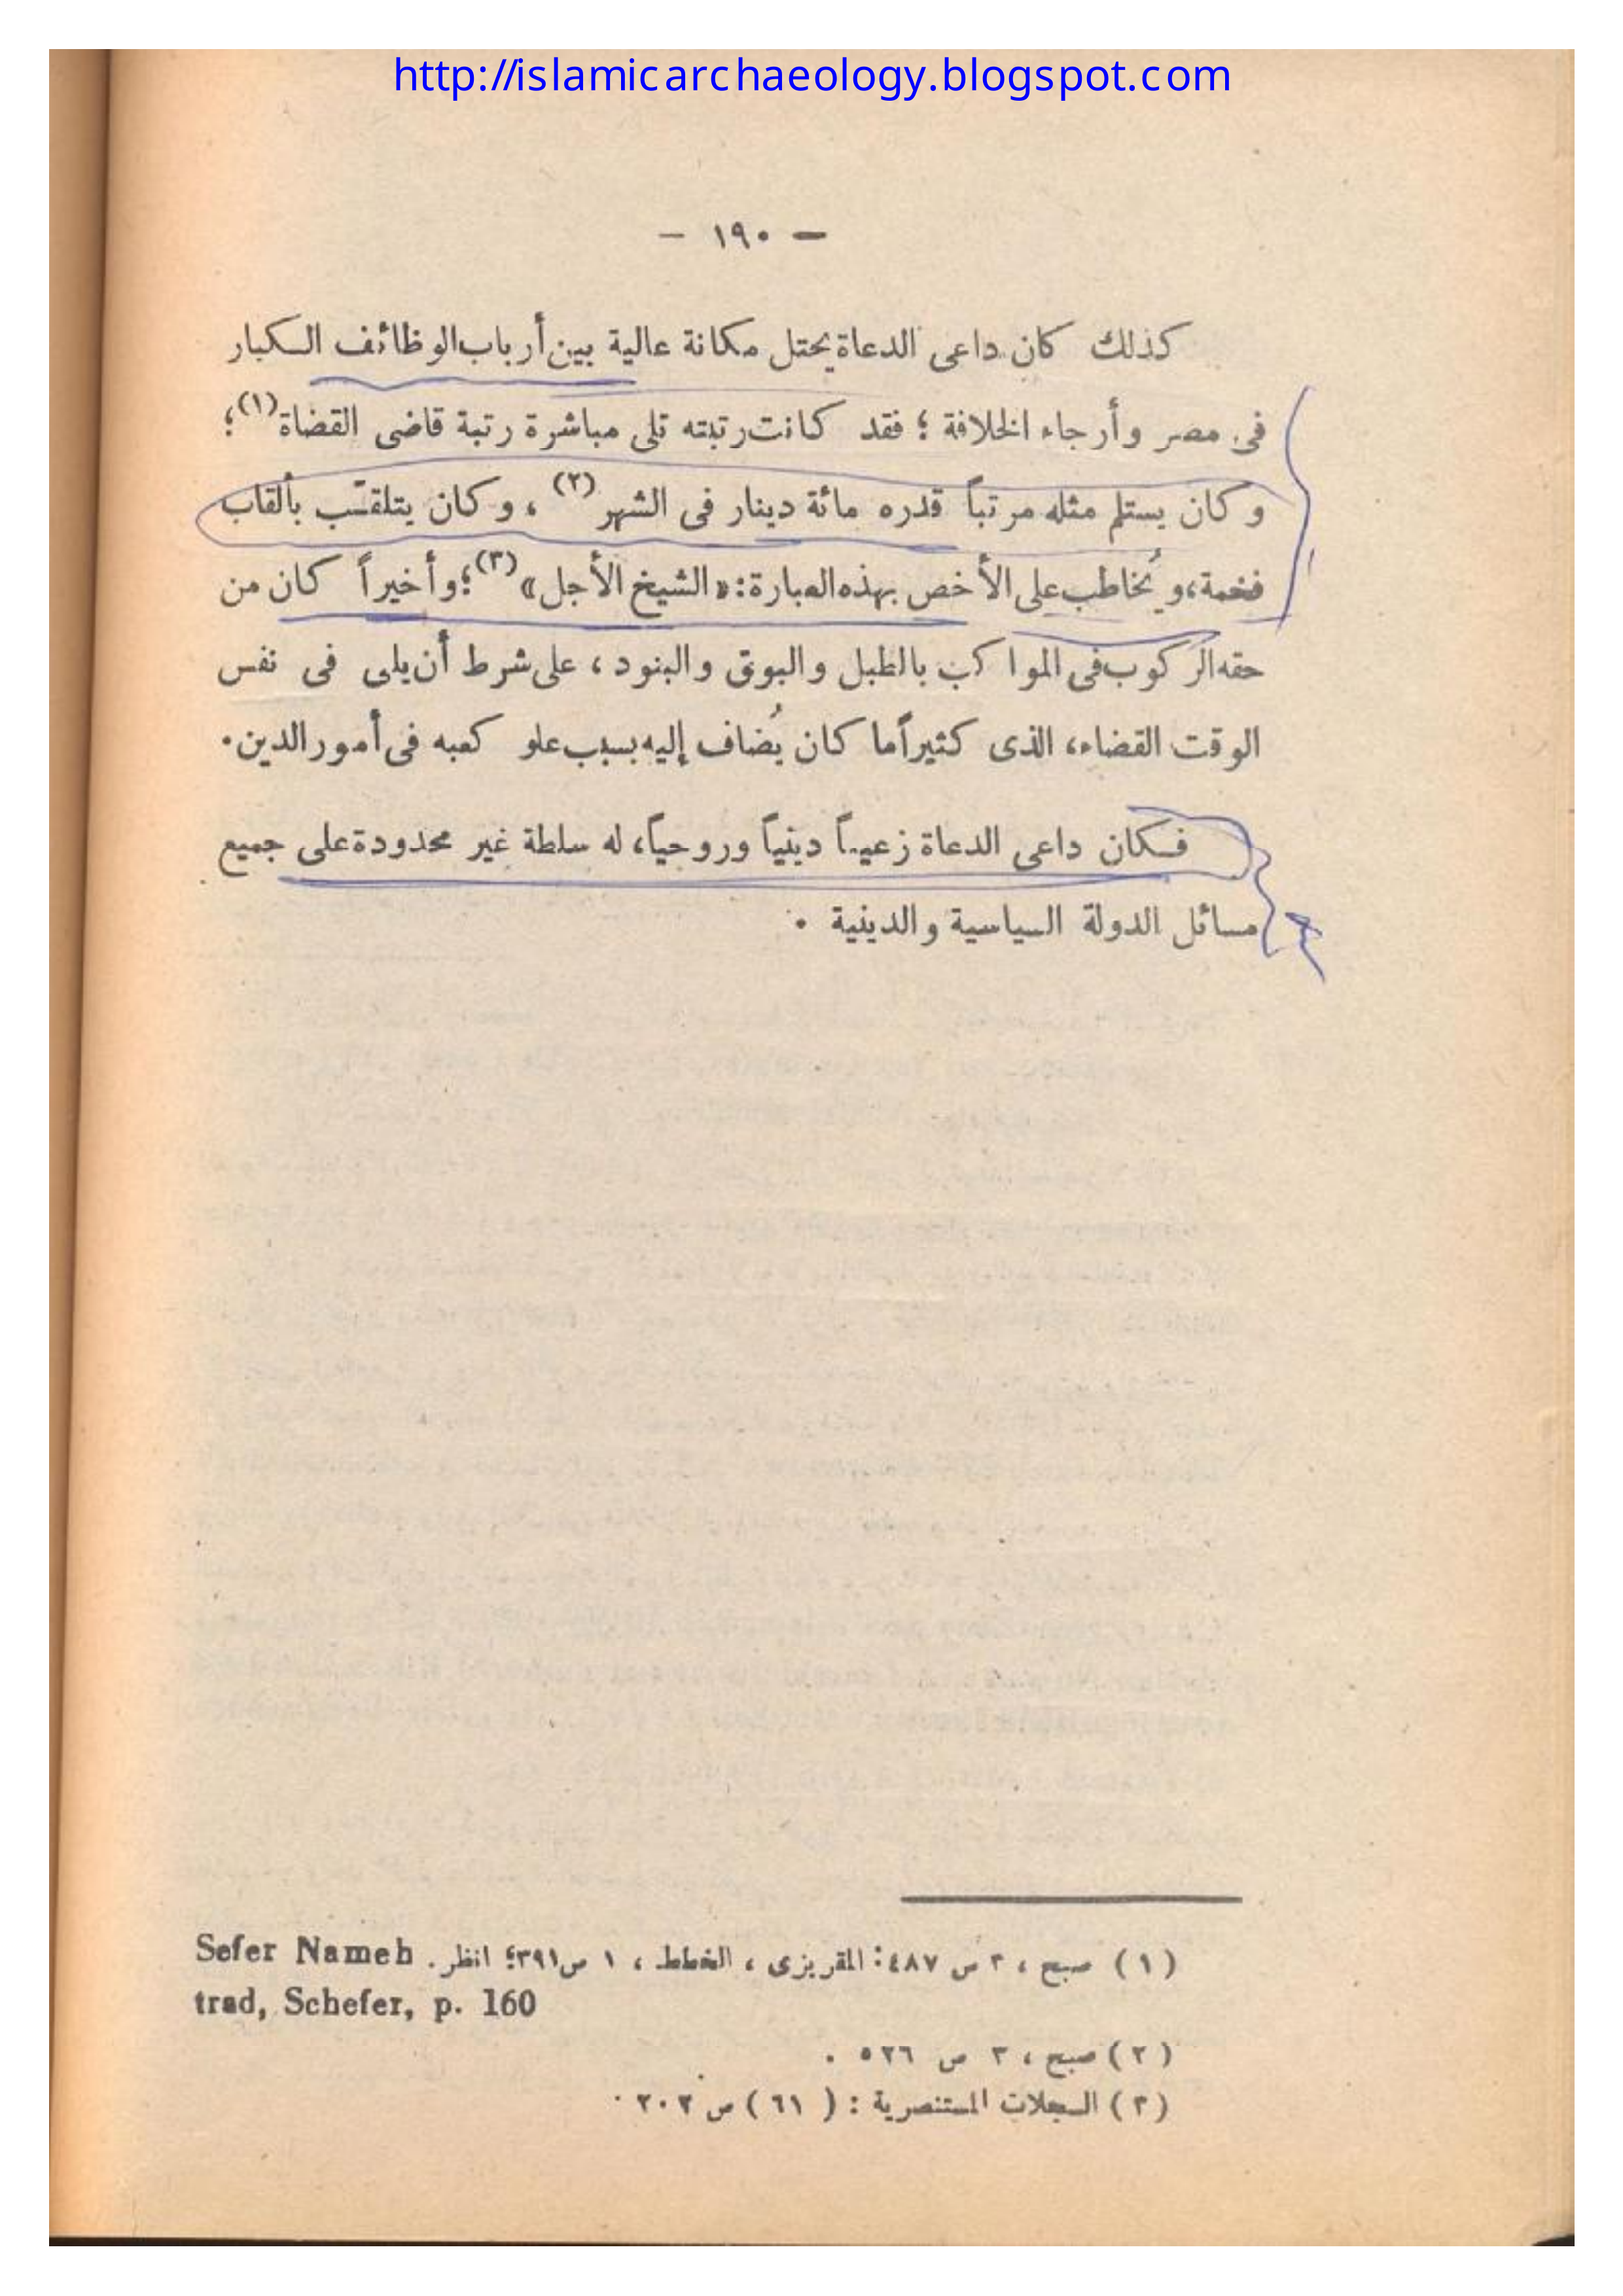 http://islamicarchaeology.blogspot.com
— ١٩٠ —
كذلك كان داعى الدعاة يحتل مكانة عالية بين أرباب الوظائف الكبار
فى مصر وأرجاء الخلافة ؛ فقد كانت رتبته تلى مباشرة رتبة قاضى القضاة(١)؛
وكان يستلم مثله مرتباً قدره مائة دينار فى الشهر(٢) ، وكان يتلقّب بألقاب
فخمة، ويُخاطب على الأخص بهذه العبارة: «الشيخ الأجل»(٣)؛ وأخيراً كان من
حقه الركوب فى المواكب بالطبل والبوق والبنود ، على شرط أن يلى فى نفس
الوقت القضاء، الذى كثيراً ما كان يُضاف إليه بسبب علو كعبه فى أمور الدين.
فكان داعى الدعاة زعيماً دينياً وروحياً، له سلطة غير محدودة على جميع
مسائل الدولة السياسية والدينية .
(١) صبح ، ٣ ص ٤٨٧: المقريزى ، الخطط ، ١ ص ٣٩١؛ انظر. Sefer Nameh
trad, Schefer, p. 160
(٢) صبح ، ٣ ص ٥٢٦ .
(٣) السجلات المستنصرية : (٦١) ص ٢٠٢ .